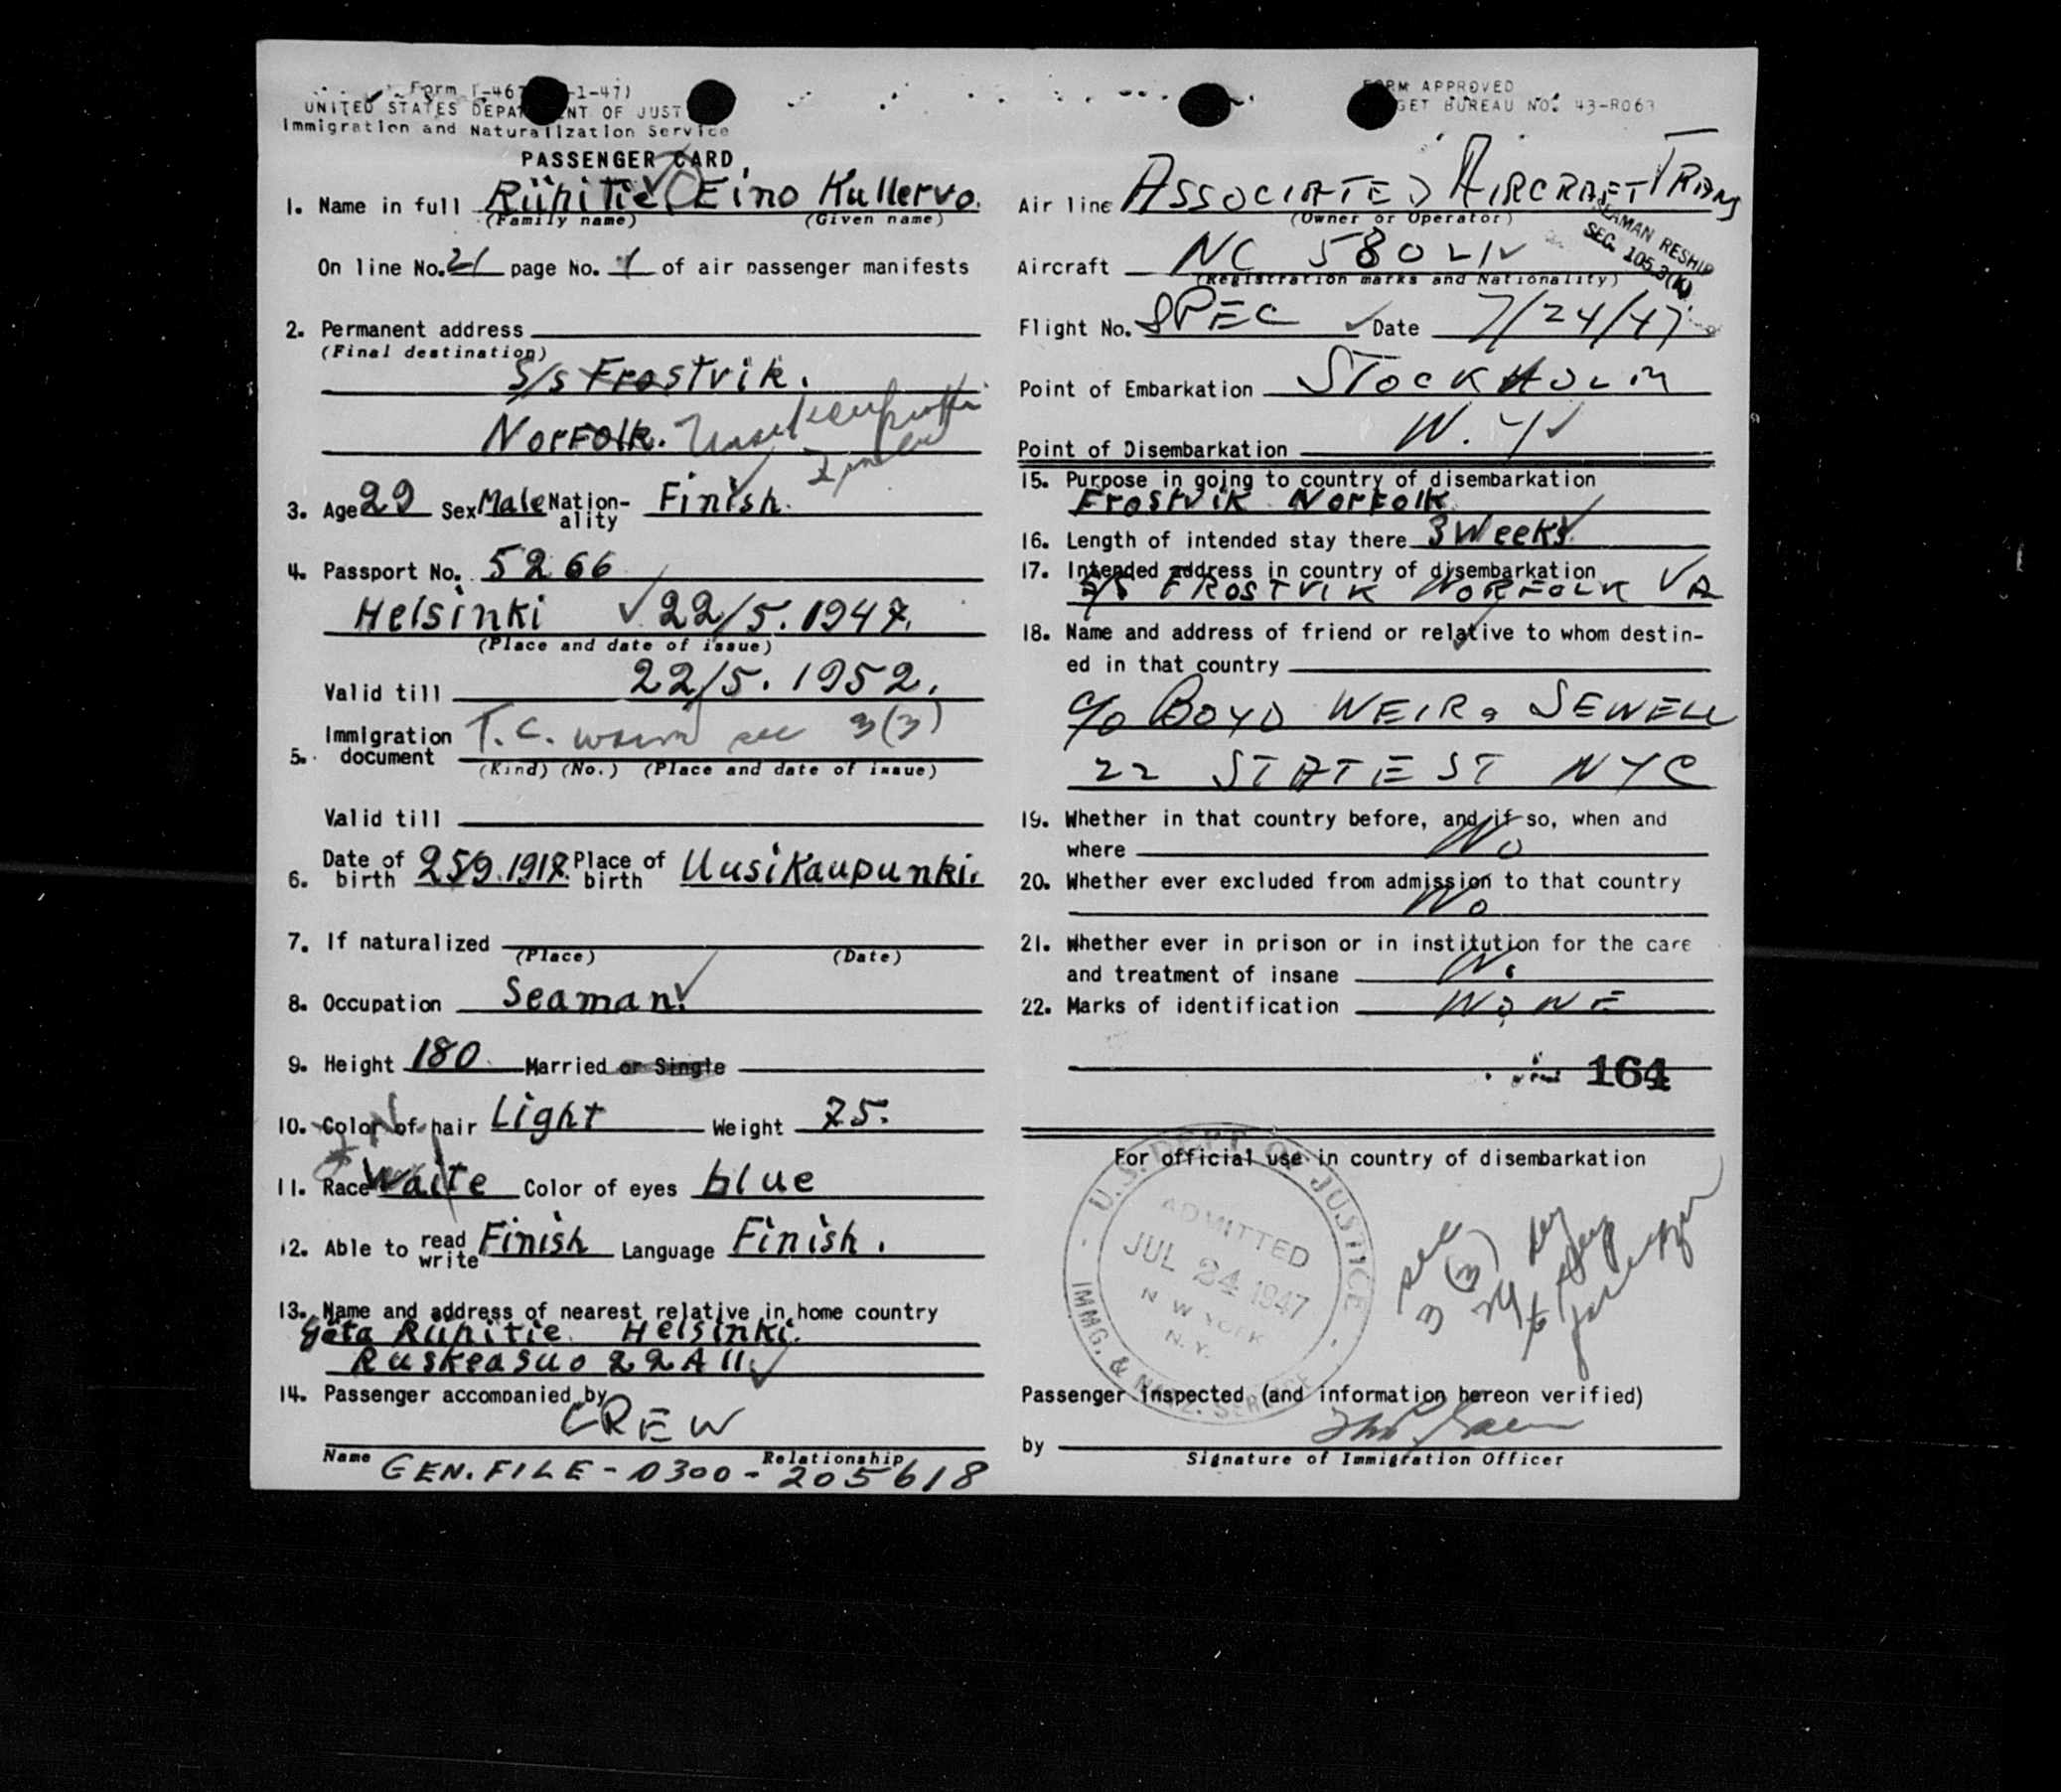 Form I-467 -1-47)
UNITED STATES DEPA ENT OF JUST
Immigration and Naturalization Service
PASSENGER CARD
1. Name in full Riihitie Eino Kullervo.
(Family name) (Given name)
On line No. 21 page No. 1 of air passenger manifests
2. Permanent address
(Final destination)
S/s Frostvik.
Norfolk.
3. Age 29 Sex Male Nationality Finish.
4. Passport No. 5266
Helsinki 22/5. 1947.
(Place and date of issue)
Valid till 22/5. 1952.
5. Immigration document T.C. sec 3(3)
(Kind) (No.) (Place and date of issue)
Valid till
6. Date of birth 25/9. 1917. Place of birth Uusikaupunki.
7. If naturalized
(Place) (Date)
8. Occupation Seaman.
9. Height 180 Married or Single
10. Color of hair Light Weight 75.
11. Race Waite Color of eyes blue
12. Able to read write Finish Language Finish.
13. Name and address of nearest relative in home country
Göta Riihitie Helsinki.
Ruskeasuo 22 A 11
14. Passenger accompanied by
CREW
Name Relationship
GEN. FILE - 0300 - 205618
FORM APPROVED
GET BUREAU NO. 43-R063
Air line ASSOCIATED AIRCRAFT TRANS
(Owner or Operator)
SEAMAN RESHIP
SEC. 105.3(K)
Aircraft NC 58021
(Registration marks and Nationality)
Flight No. SPEC Date 7/24/47
Point of Embarkation STOCKHOLM
Point of Disembarkation N.Y
15. Purpose in going to country of disembarkation
Frostvik Norfolk
16. Length of intended stay there 3 Weeks
17. Intended address in country of disembarkation
S/S FROSTVIK NORFOLK VA
18. Name and address of friend or relative to whom destin-
ed in that country
c/o BOYD WEIR & SEWELL
22 STATE ST NYC
19. Whether in that country before, and if so, when and
where No
20. Whether ever excluded from admission to that country
No
21. Whether ever in prison or in institution for the care
and treatment of insane No
22. Marks of identification NONE
164
For official use in country of disembarkation
U.S. DEPT. OF JUSTICE
ADMITTED
JUL 24 1947
NEW YORK
N.Y.
IMMG. & NATZ. SERVICE
sec
3(3)
Passenger inspected (and information hereon verified)
by
Signature of Immigration Officer